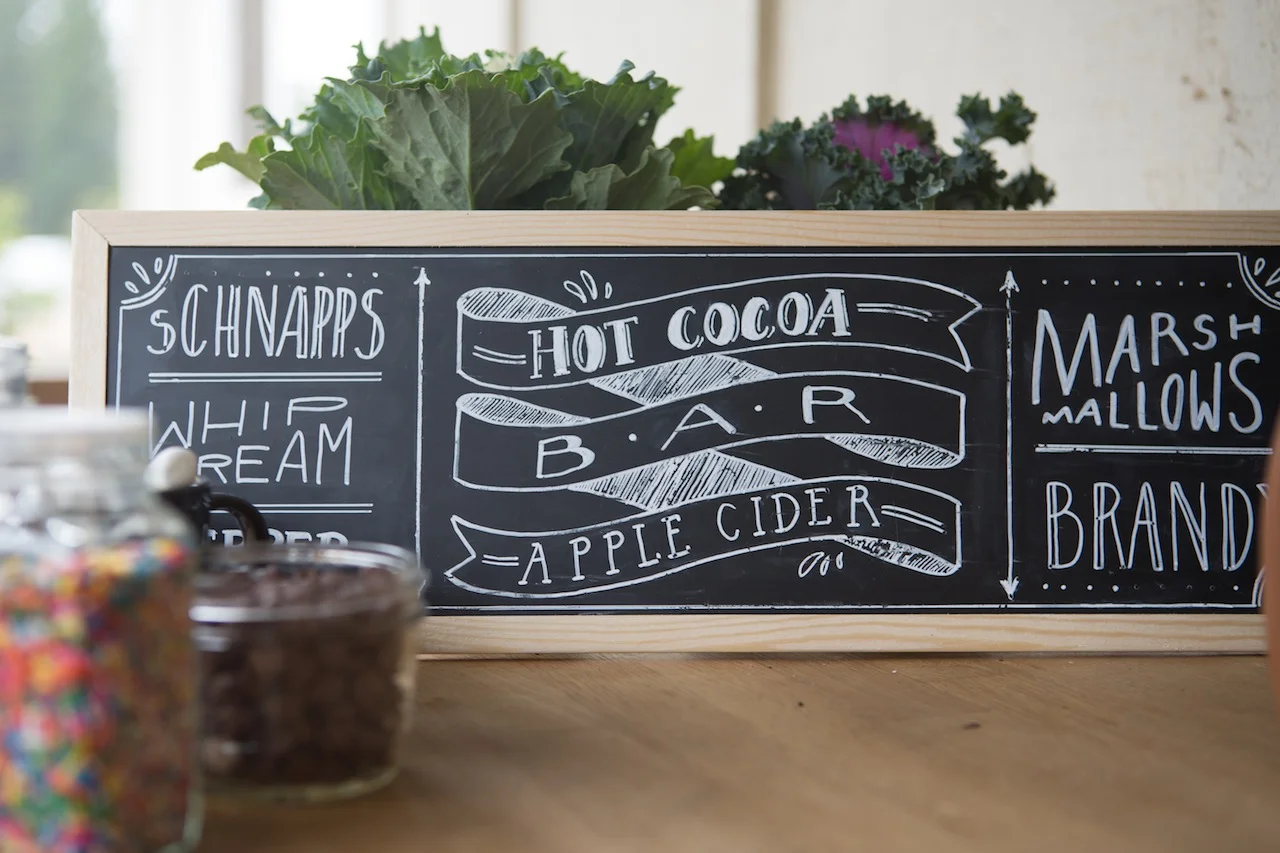 SCHNAPPS
WHIP
HOT COCOA
B·A·R
APPLE CIDER
MARSH
MALLOWS